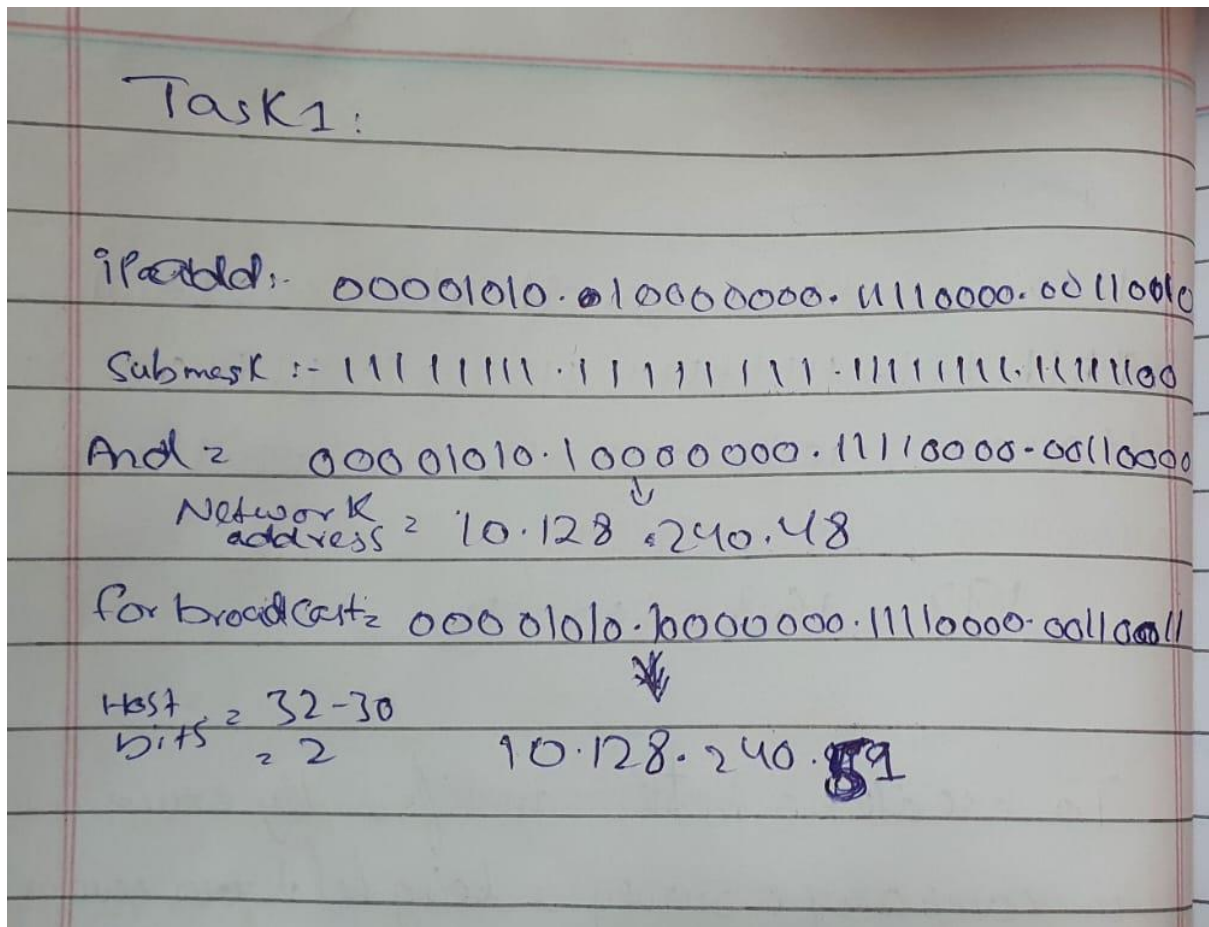 Task1:
ip add:- 00001010.010000000.11110000.00110010
Submask :- 111111111.11111111.11111111.11111100
And = 00001010.10000000.11110000.00110000
Network address = 10.128.240.48
for broadcast= 00001010.10000000.11110000.00110011
Host bits = 32-30
= 2 10.128.240.51